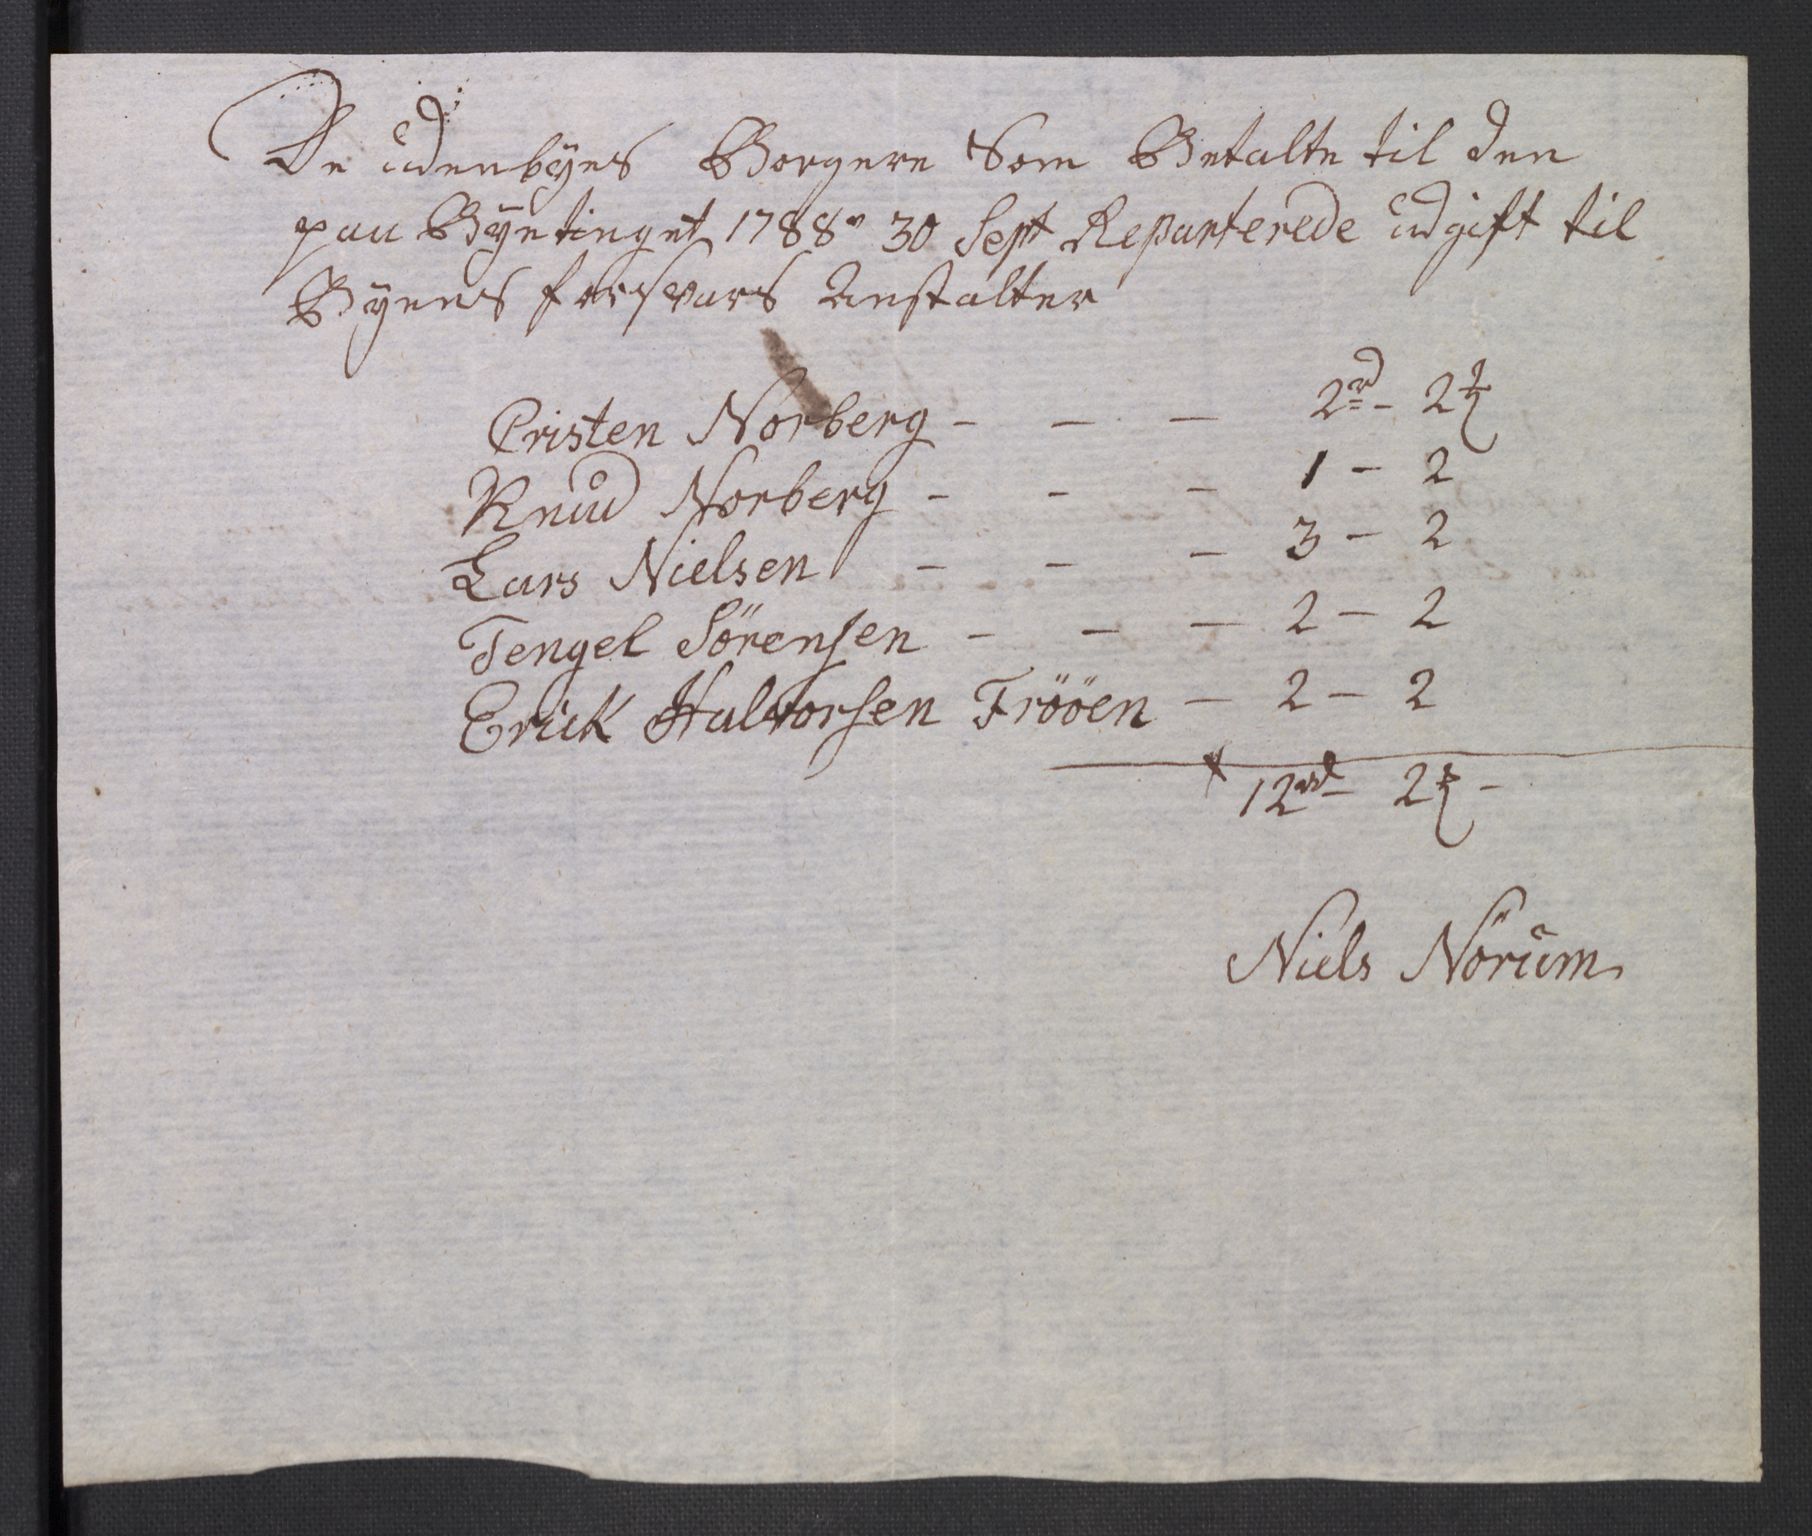 De udenbÿes Borgere Som Betalte til den
paa Bÿetinget 1788 30 Sept Reparterede udgift til
Bÿens forsvars Anstalter
Cristen Norberg - - - 2 rd - 2 ß
Knud Norberg - - - 1 - 2
Lars Nielsen - - - 3 - 2
Tengel Sörensen - - - 2 - 2
Erick Halvorsen Frööen - 2 - 2
12 rd - 2 ß -
Niels Nörum